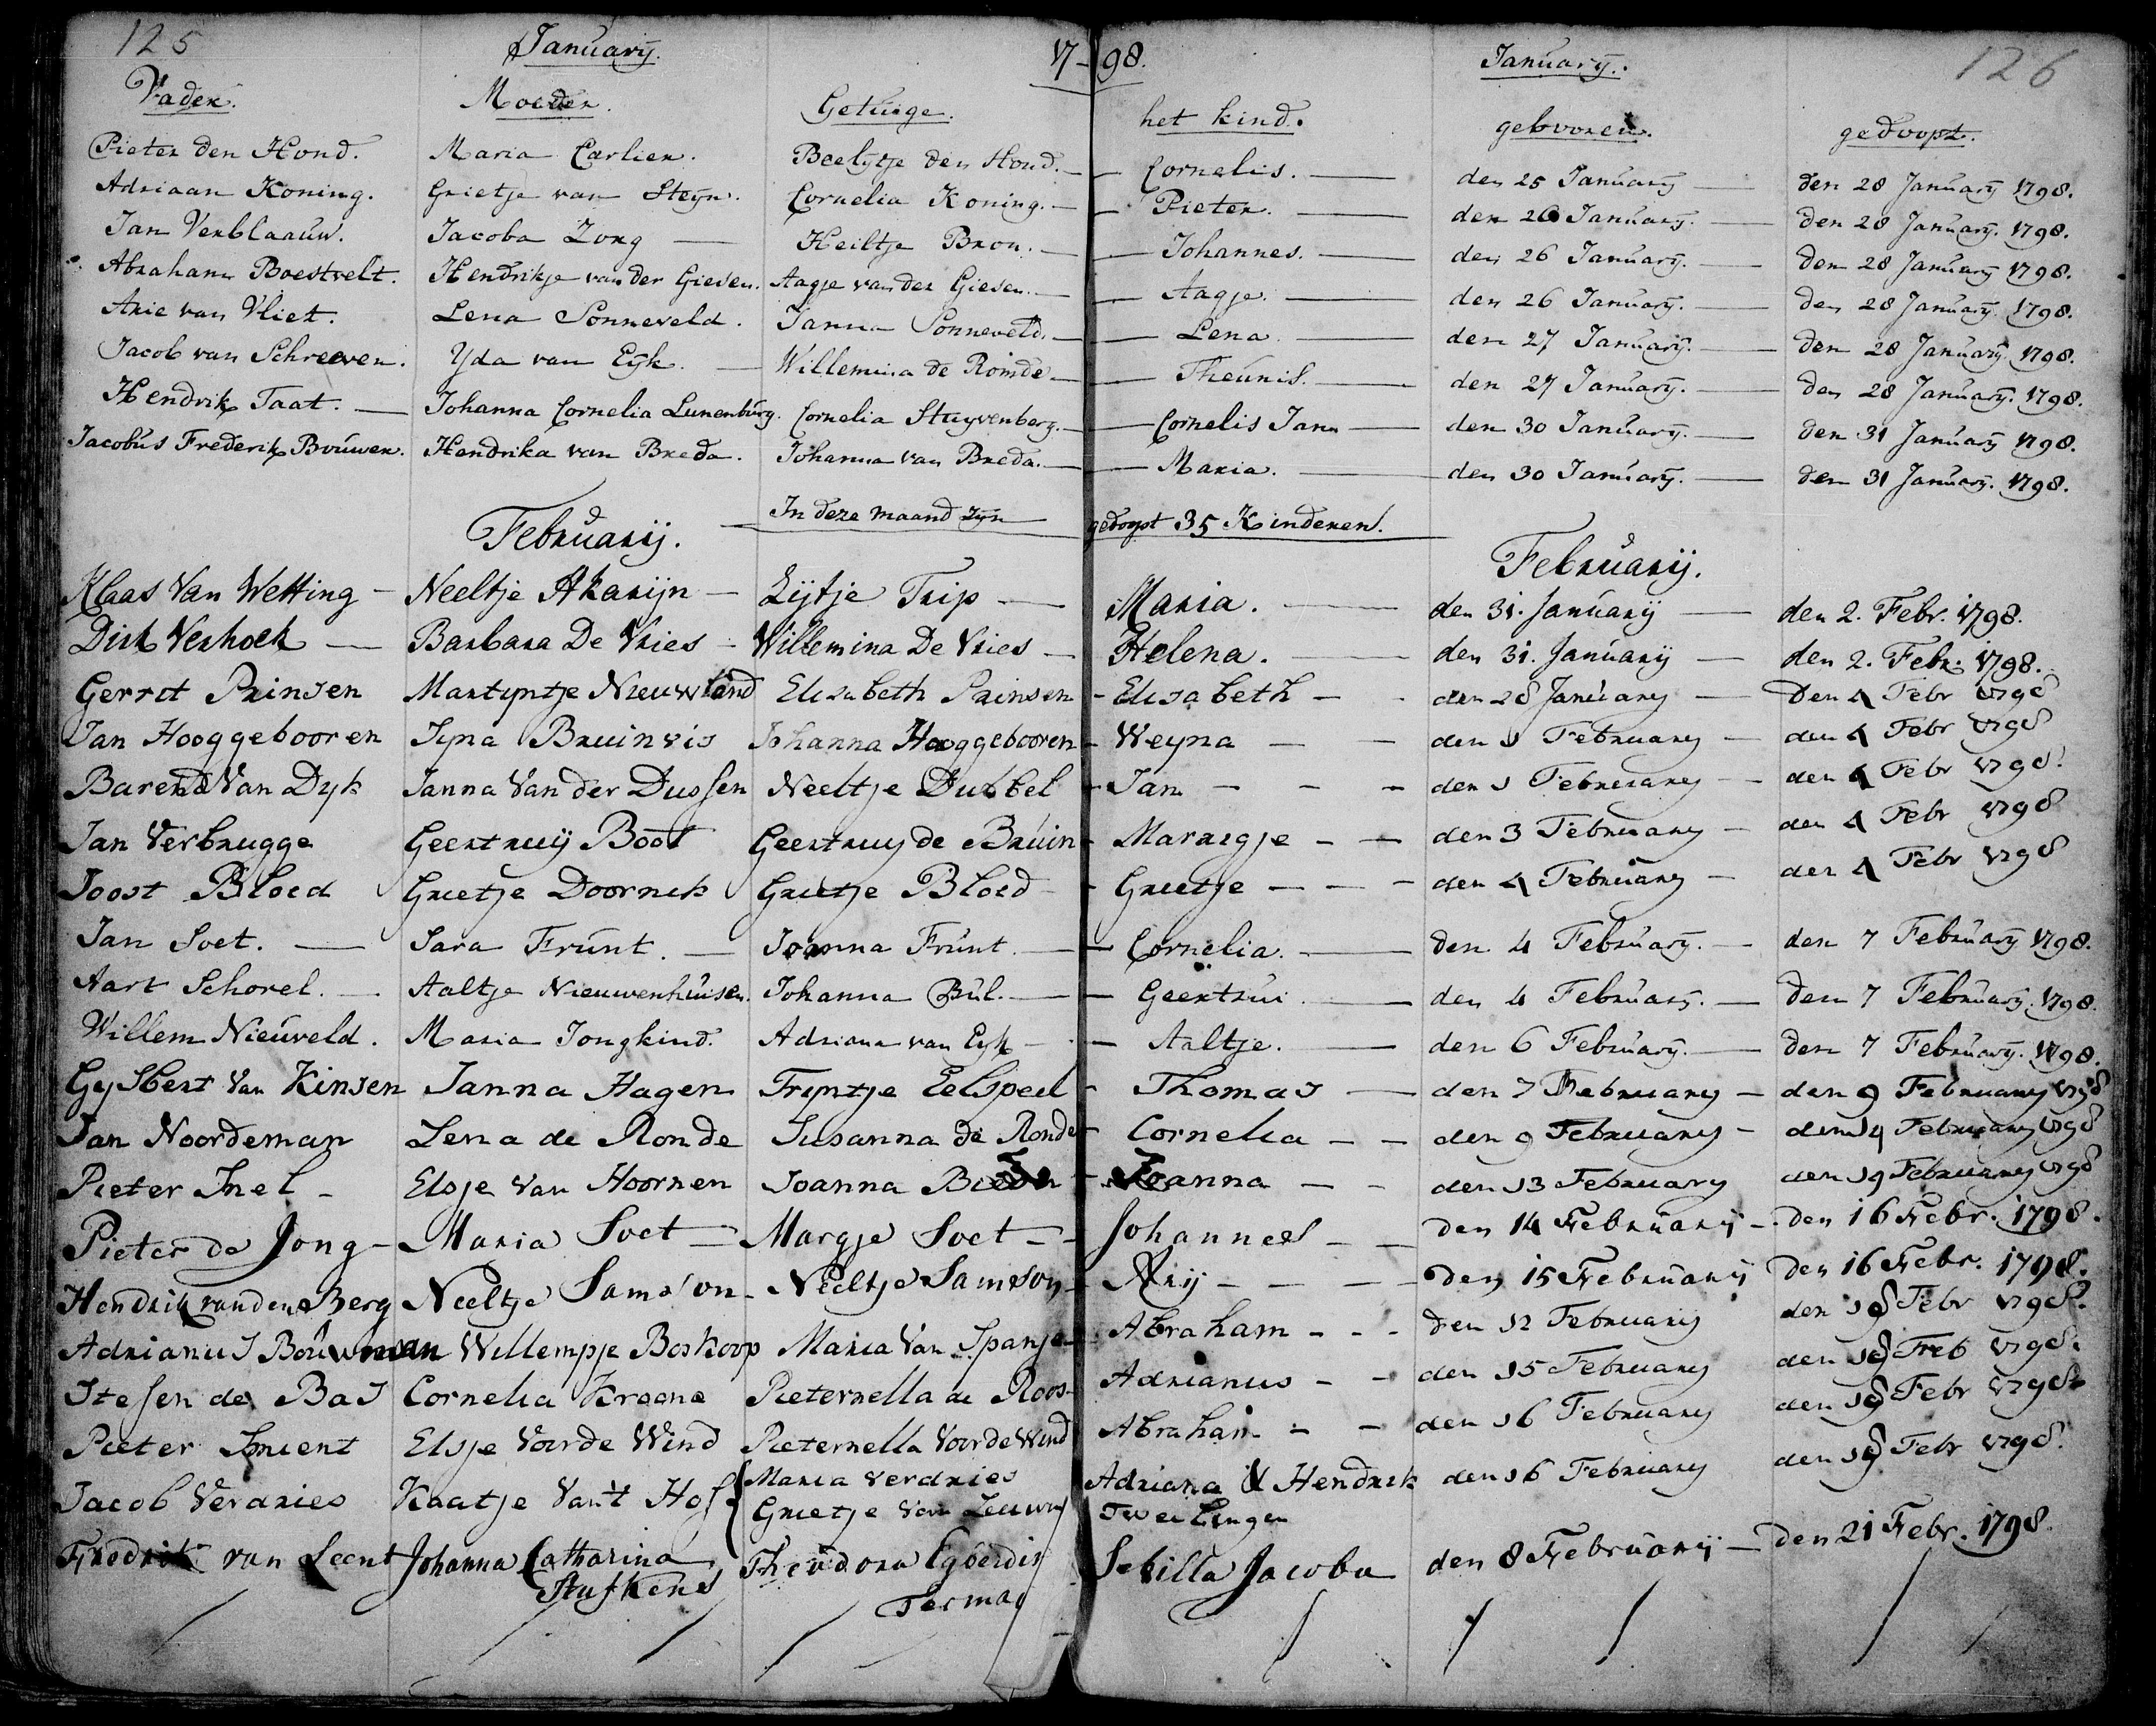 125 Januarij. 17-98. Januarij. 126
Vader. Moeder. Getuige. het kind. gebooren. gedoopt.
Pieter den Hond. Maria Carlier. Beelytje den Hond. Cornelis. den 25 Januarij den 28 Januarij 1798.
Adriaan Koning. Grietje van Steyn. Cornelia Koning. Pieter. den 26 Januarij. den 28 Januarij. 1798.
Jan Verblaauw. Jacoba Zorg Heiltje Bron. Johannes. den 26 Januarij. den 28 Januarij 1798.
Abraham Boestvelt. Hendrikje van der Giesen. Aagje van der Giesen. Aagje. den 26 Januarij. den 28 Januarij 1798.
Arie van Vliet. Lena Sonneveld. Janna Sonneveld. Lena. den 27 Januarij. den 28 Januarij 1798.
Jacob van Schreeven. Yda van Eyk. Willemina de Romde Theunis. den 27 Januarij. den 28 Januarij. 1798.
Hendrik Taat. Johanna Cornelia Lunenburg. Cornelia Stuyvenberg. Cornelis Jan den 30 Januarij. den 31 Januarij 1798.
Jacobus Frederik Bouwer. Hendrika van Breda. Johanna van Breda. Maria. den 30 Januarij. den 31 Januarij. 1798.
In deze maand zyn gedoopt 35 Kinderen.
Februarij. Februarij.
Klaas Van Wetting Neeltje Akarijn Lijtje Trip Maria. den 31. Januarij den 2. Febr. 1798.
Dirk Verhoek Barbara De Vries Willemina De Vries Helena. den 31. Januarij den 2. Febr. 1798.
Gerrit Prinsen Martyntje Nieuwland Elisabeth Prinsen Elisabeth den 28 January den 4 Febr 1798
Jan Hooggebooren Jyna Bruinvis Johanna Hooggebooren Weyna den 1 February den 4 Febr 1798
Barend Van Dyk Janna Van der Dussen Neeltje Dubbel Jan den 1 February den 4 Febr 1798.
Jan Verbrugge Geertruij Boot Geertruy de Bruin Maraigje den 3 February den 4 Febr 1798
Joost Bloed Grietje Doornik Grietje Bloed Grietje den 4 February den 4 Febr 1798
Jan Soet. Sara Frunt. Joanna Frunt. Cornelia. den 4 Februarij. den 7 Februarij 1798.
Aart Schorel. Aaltje Nieuwenhuisen. Johanna Bul. Geertrui den 4 Februarij. den 7 Februarij. 1798.
Willem Nieuveld. Maria Jongkind. Adriana van Eyk Aaltje. den 6 Februarij. den 7 Februarij. 1798.
Gysbert Van Kinsen Janna Hagen Tryntje Eelspeel Thomas den 7 February den 9 February 1798
Jan Noordeman Lena de Ronde Susanna de Ronde Cornelia den 9 February den 14 February 1798
Pieter Snel Elsje Van Hoornen Joanna Joanna den 13 February den 19 February 1798
Pieter de Jong Maria Soet Margje Soet Johannes den 14 Februarij den 16 Febr. 1798.
Hendrik van den Berg Neeltje Samson Neeltje Samson Arij den 15 Februarij den 16 Febr. 1798.
Adrianus Bouwman Willempje Boskoop Maria Van Spanje Abraham den 12 February den 18 Febr 1798.
Stefen de Bas Cornelia Kroone Pieternella de Roos Adrianus den 15 February den 18 Feb 1798.
Pieter Smient Elsje Voorde Wind Pieternella Voorde Wind Abraham den 16 February den 18 Febr 1798.
Jacob Verdries Kaatje Van't Hof Maria Verdries Adriana & Hendrik den 16 February den 18 Febr 1798.
Grietje Van Leeuwen Tweelingen
Fredrik van Leent Johanna Catharina Theodora Egberdin Sebilla Jacoba den 8 Februarij den 21 Febr. 1798.
Stufkens Termaa